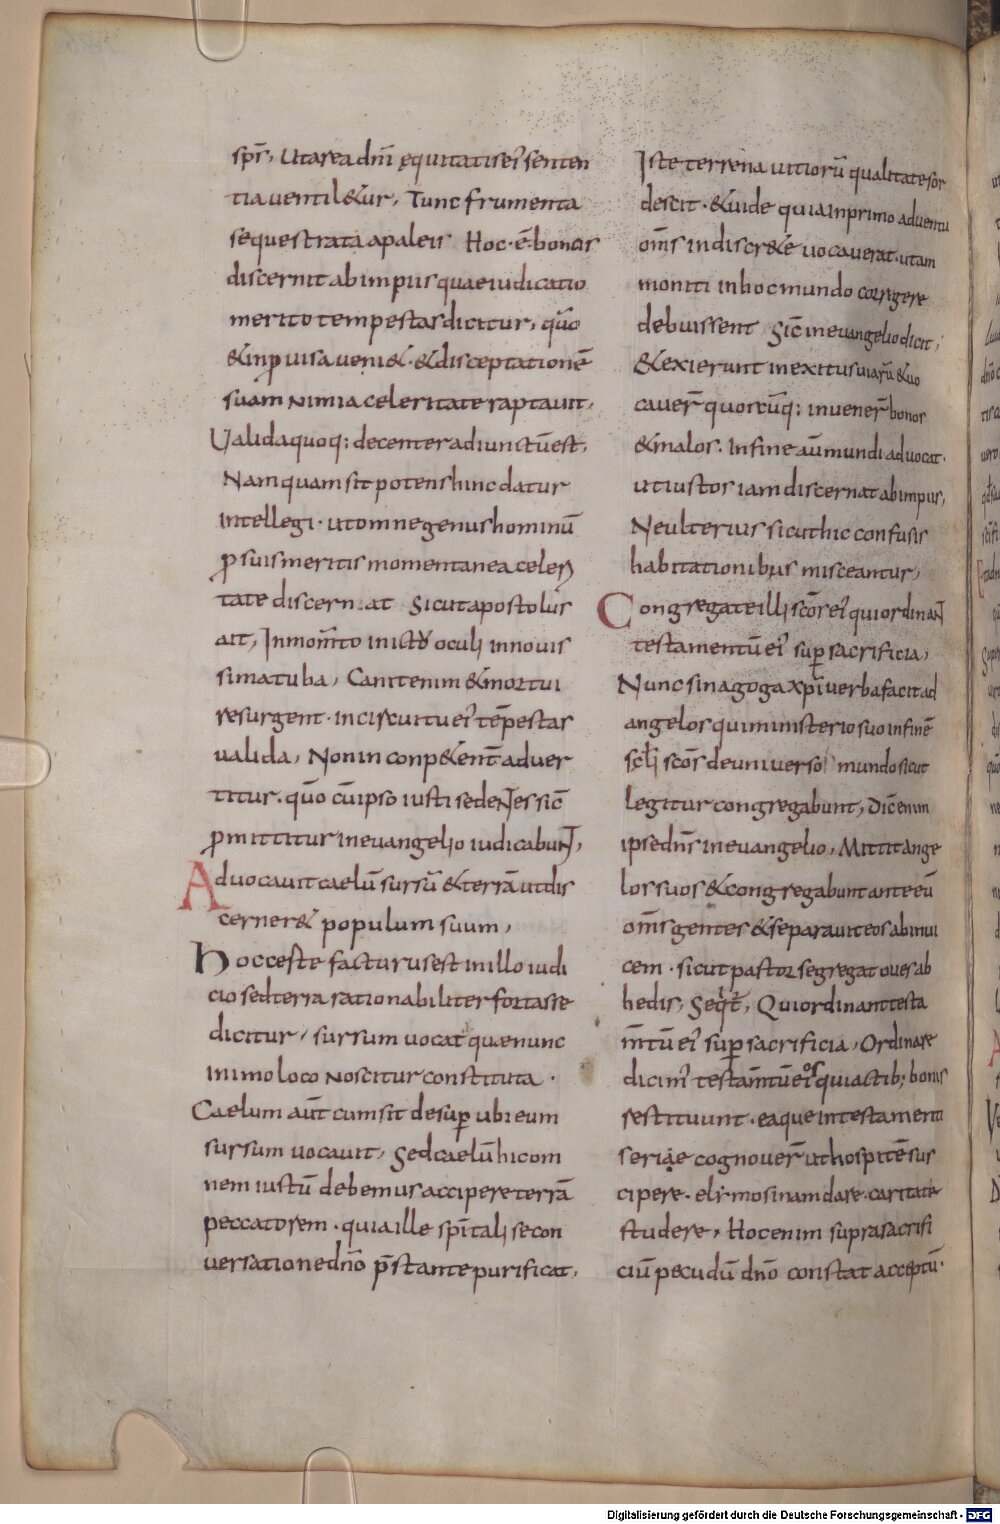 spr̅, Utarea dn̅i ęquitatis ei' senten
tia uentil&ur, Tunc frumenta
sequestrata apaleis Hoc·ē·bonos
discernit ab impiis quae iudicatio
merito tempestas dicitur, quo̅
& inprouisa ueni&·& disceptationē
suam nimia celeritate raptauit,
Ualida quoq; decenter adiunctū est,
Nam quam sit potens hinc datur
intellegi· ut omne genus hominū
ꝓ suis meritis momentanea celeri
tate discernat Sicut apostolus
ait, In mom̅to in ictu oculi in nouis
sima tuba, Canit enim & mortui
resurgent· in circuitu ei' tēpestas
ualida, Non in conp&ent̅ aduer
titur· quo̅ cū ipso iusti sedeNTes sic̅
ꝓmittitur in euangelio iudicabuNT,
Aduocauit caelū sursū & terrā ut dis
cerner& populum suum,
Hoc ceste facturus est in illo iudi
cio sed terra rationabiliter fortasse
dicitur, sursum uocat quae nunc
in imo loco noscitur constituta·
Caelum aut̅ cum sit desup̱ ubi eum
sursum uocauit, Sed caelū hic om
nem iustū debemus accipere terrā
peccatorem· quia ille spi̅tali se con
uersatione dn̅o p̅stante purificat,
Iste terrena uitiorū qualitate sor
descit·& uide quia in primo aduentu
om̅s indiscr&e uocauerat· ut am
moniti in hoc mundo corrigere
debuissent Sic̅ in euangelio dicit,
& exierunt in exitus uiarū & uo
cauer̅ quotcu̅q; inuener̅ bonos
& malos· In fine aū mundi aduocat·
ut iustos iam discernat ab impiis,
Ne ulterius sicut hic confusis
habitationibus misceantur,
Congregate illi sc̅os ei' qui ordinaNT
testamentū ei' sup̱ sacrificia,
Nunc sinagoga xp̅i uerba facit ad
angelos qui ministerio suo in finē
sc̅li sc̅os de uniuerso mundo sicut
legitur congregabunt, Dic̅ enim
ipse dn̅s in euangelio, Mittit ange
los suos & congregabunt ante eū
om̅s gentes & separauit eos ab inui
cem· sicut pastor segregat oues ab
hedis, Seqit̅, Qui ordinant testa
m̅tū ei' sup̱ sacrificia, Ordinare
dicim' testam̅tū ei' os qui actib; bonis
se stituunt· ea que in testamenti
seriae cognouer̅ ut hospitē sus
cipere· elymosinam dare· caritate
studere, Hoc enim supra sacrifi
ciū pecudū dn̅o constat acceptū·
Digitalisierung gefördert durch die Deutsche Forschungsgemeinschaft - DFG